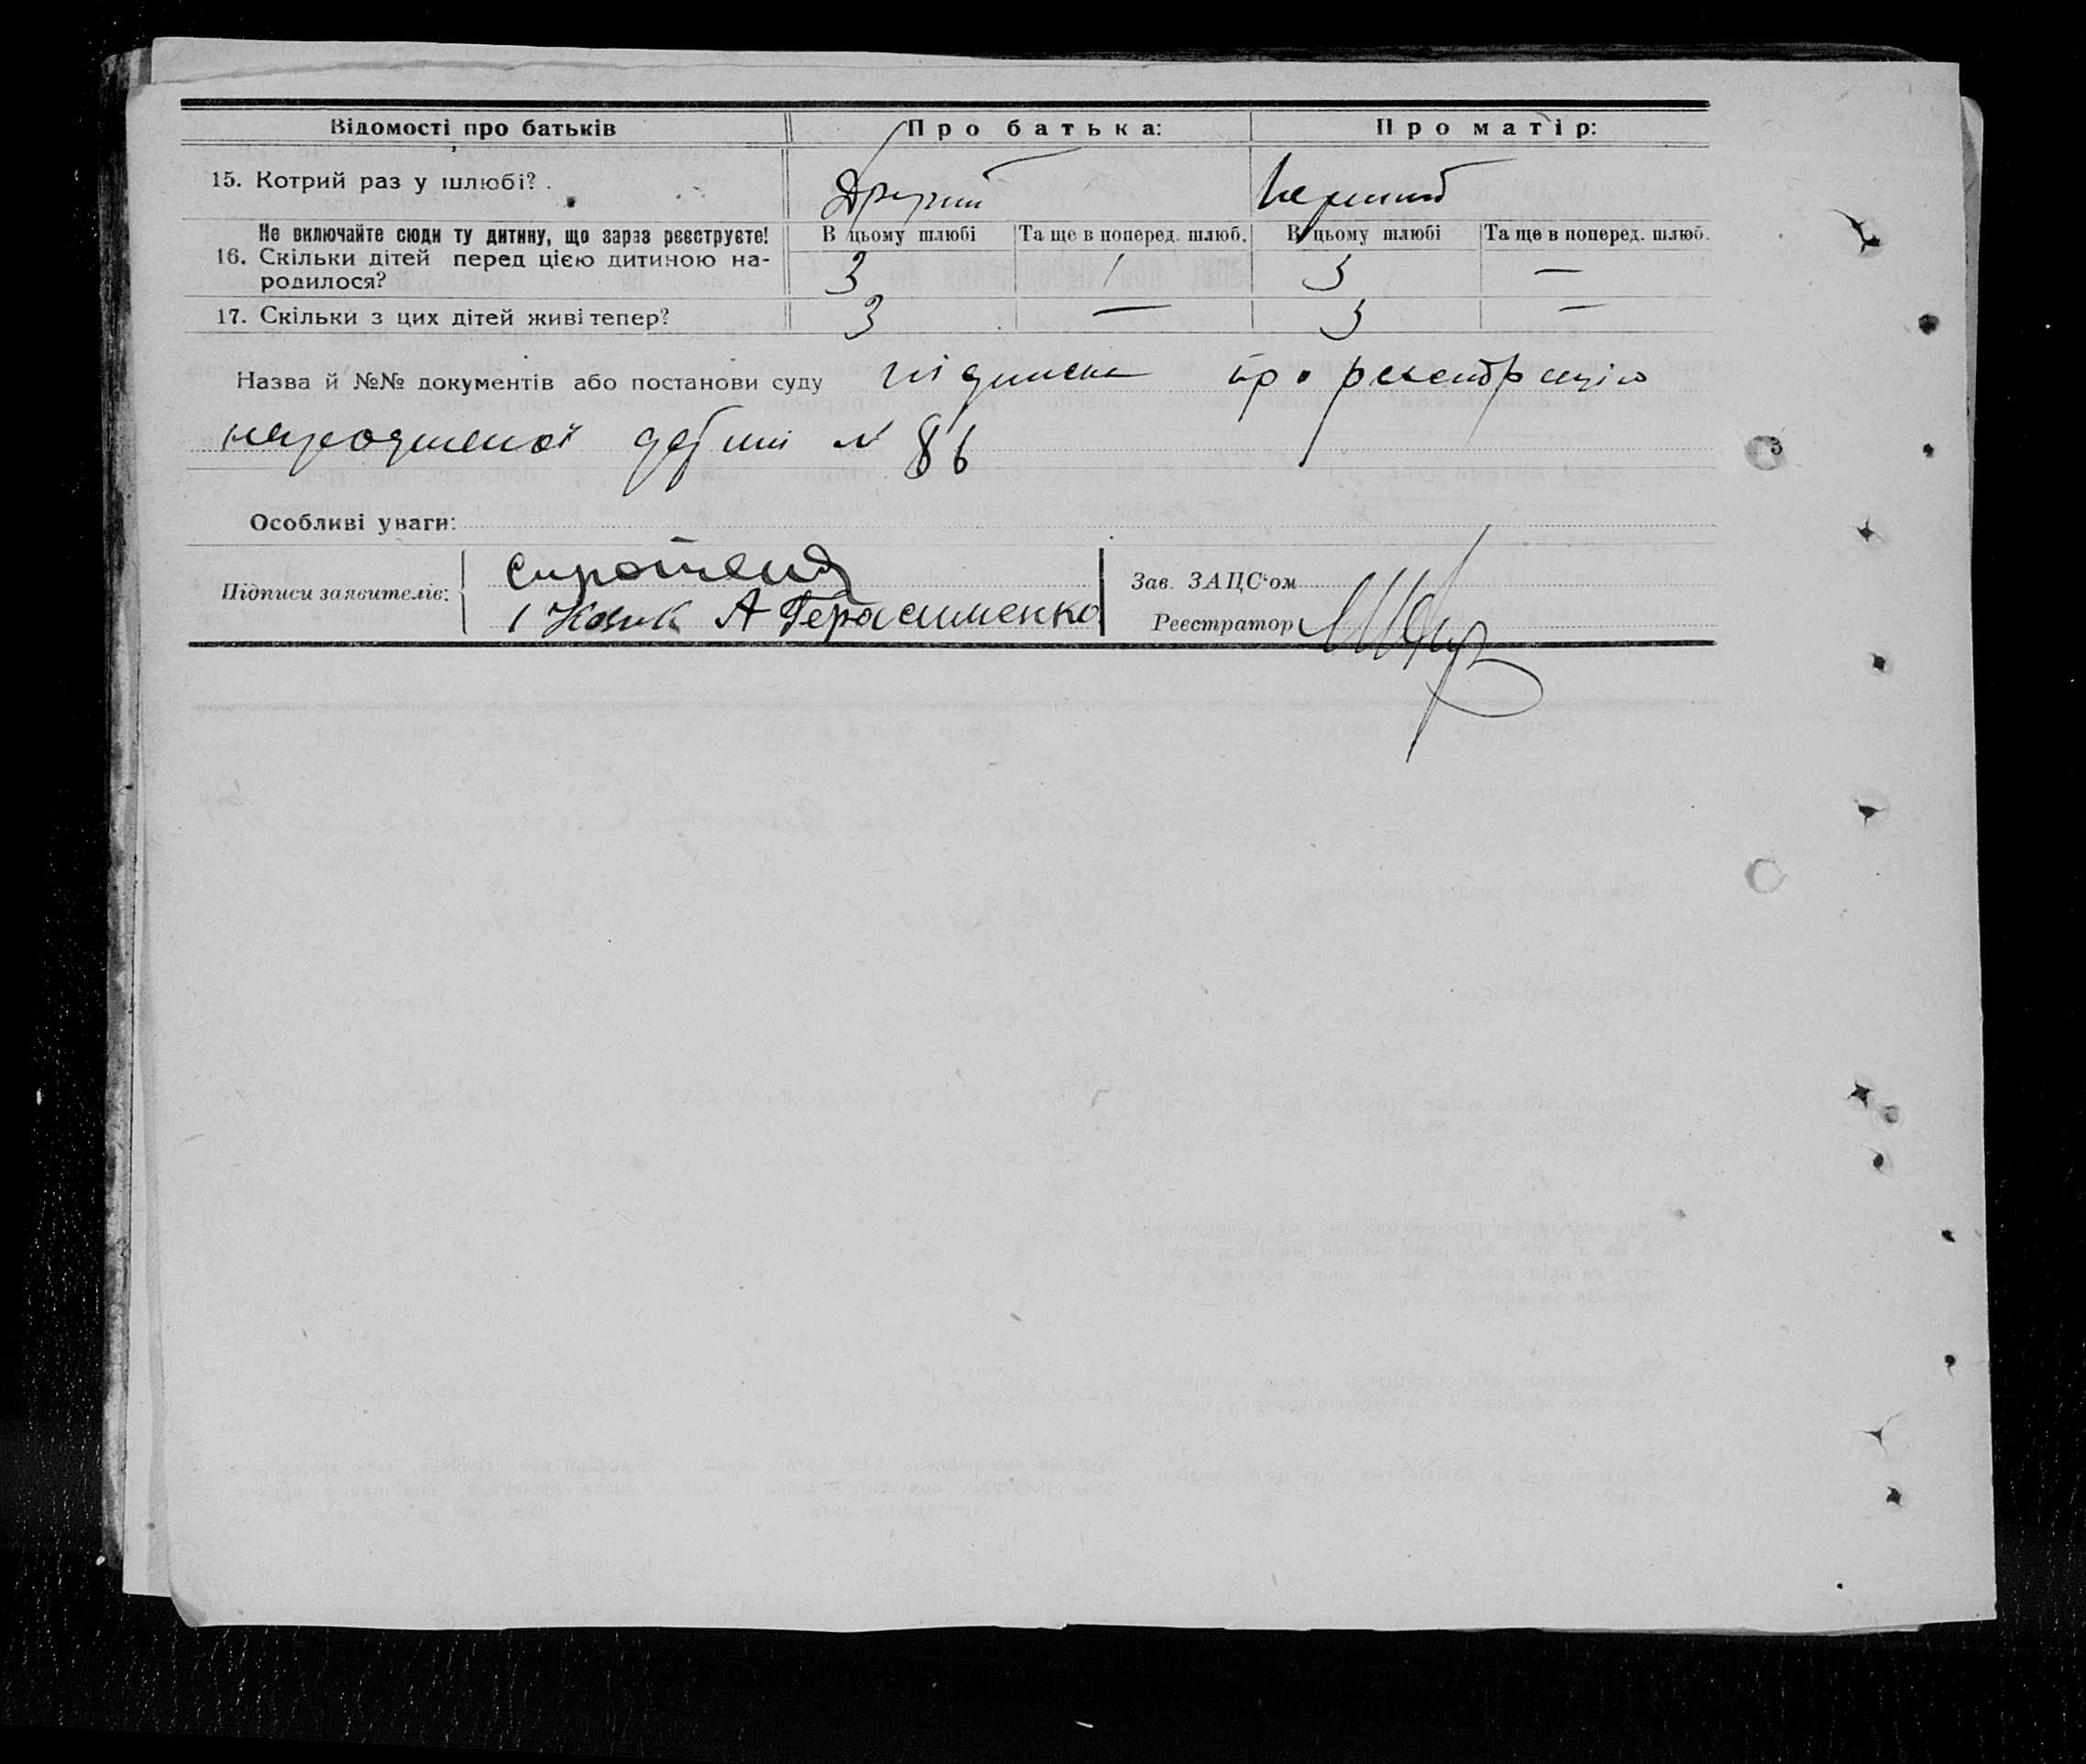 Відомості про батьків Про батька: Про матір:
15. Котрий раз у шлюбі? Другий Перший
Не включайте сюди ту дитину, що зараз реєструєте! В цьому шлюбі Та ще в поперед. шлюб. В цьому шлюбі Та ще в поперед. шлюб.
16. Скільки дітей перед цією дитиною на-
родилося? 3 1 3 —
17. Скільки з цих дітей живі тепер? 3 — 3 —
Назва й №№ документів або постанови суду підписка про реєстрацію
народженої дитини № 86
Особливі уваги:
Підписи заявителів: Зав. ЗАЦС'ом
А Герасименко Реєстратор